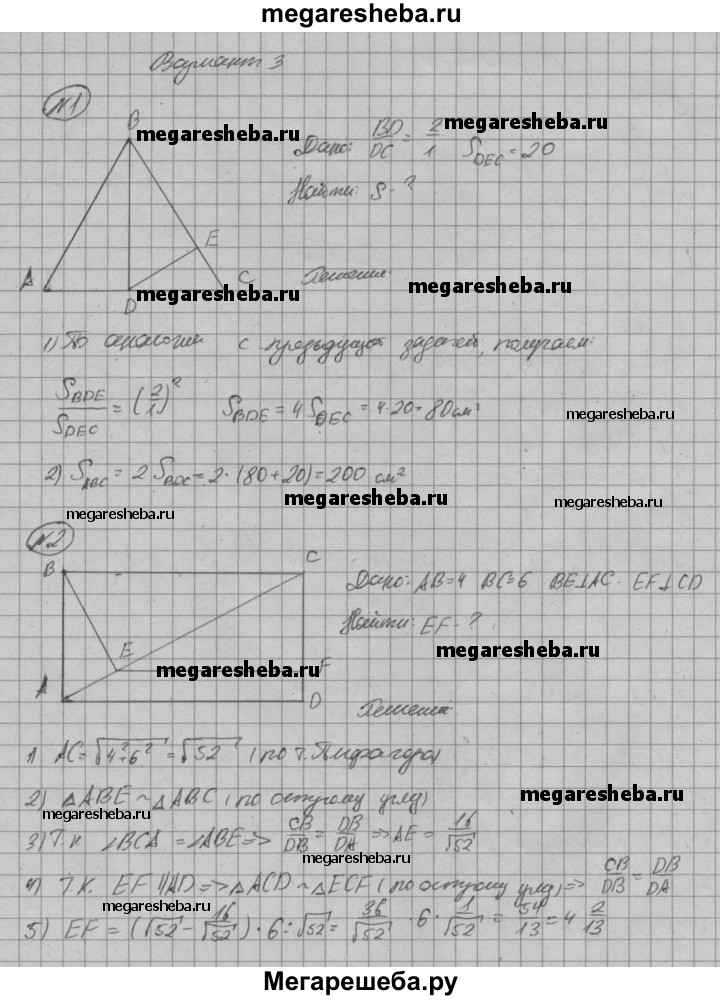 megaresheba.ru
Вариант 3
№1
B
megaresheba.ru
megaresheba.ru
Дано: BD/DC = 2/1 S_DEC = 20
Найти: S - ?
E
A
D
C
megaresheba.ru
Решение:
megaresheba.ru
1) По аналогии с предыдущей задачей, получаем:
S_BDE/S_DEC = (2/1)² S_BDE = 4 S_DEC = 4·20 = 80 см²
megaresheba.ru
2) S_ABC = 2 S_BDC = 2·(80+20) = 200 см²
megaresheba.ru
megaresheba.ru
megaresheba.ru
№2
B
C
Дано: AB=4 BC=6 BE⊥AC. EF⊥CD
Найти: EF - ?
E
megaresheba.ru
F
megaresheba.ru
A
D
Решение
1) AC = √4²+6² = √52 (по т. Пифагора)
2) △ABE ~ △ABC (по острому углу)
megaresheba.ru
megaresheba.ru
3) Т.к. ∠BCA = ∠ABE => CB/DB = DB/DA => AE = 16/√52
megaresheba.ru
4) Т.к. EF || AD => △ACD ~ △ECF (по острому углу) => CB/DB = DB/DA
megaresheba.ru
5) EF = (√52 - 16/√52)·6 : √52 = 36/√52 · 6 · 1/√52 = 54/13 = 4 2/13
megaresheba.ru
Мегарешеба.ру